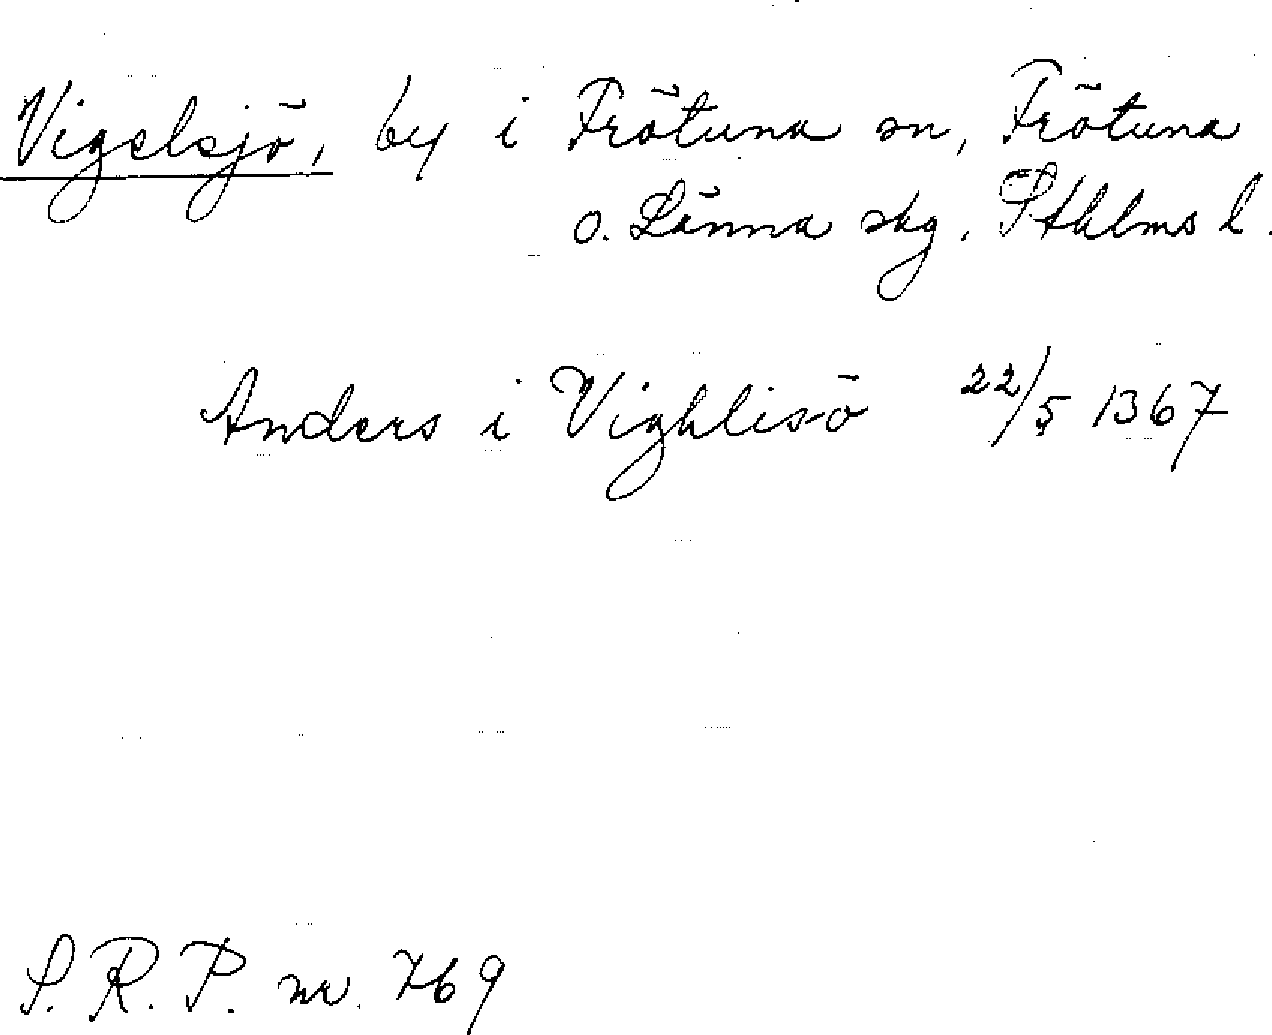 Vigelsjö, by i Frötuna sn, Frötuna
o. Länna skg. Sthlms l.
Anders i Vighlisö 22/5 1367
S. R. P. nr. 769